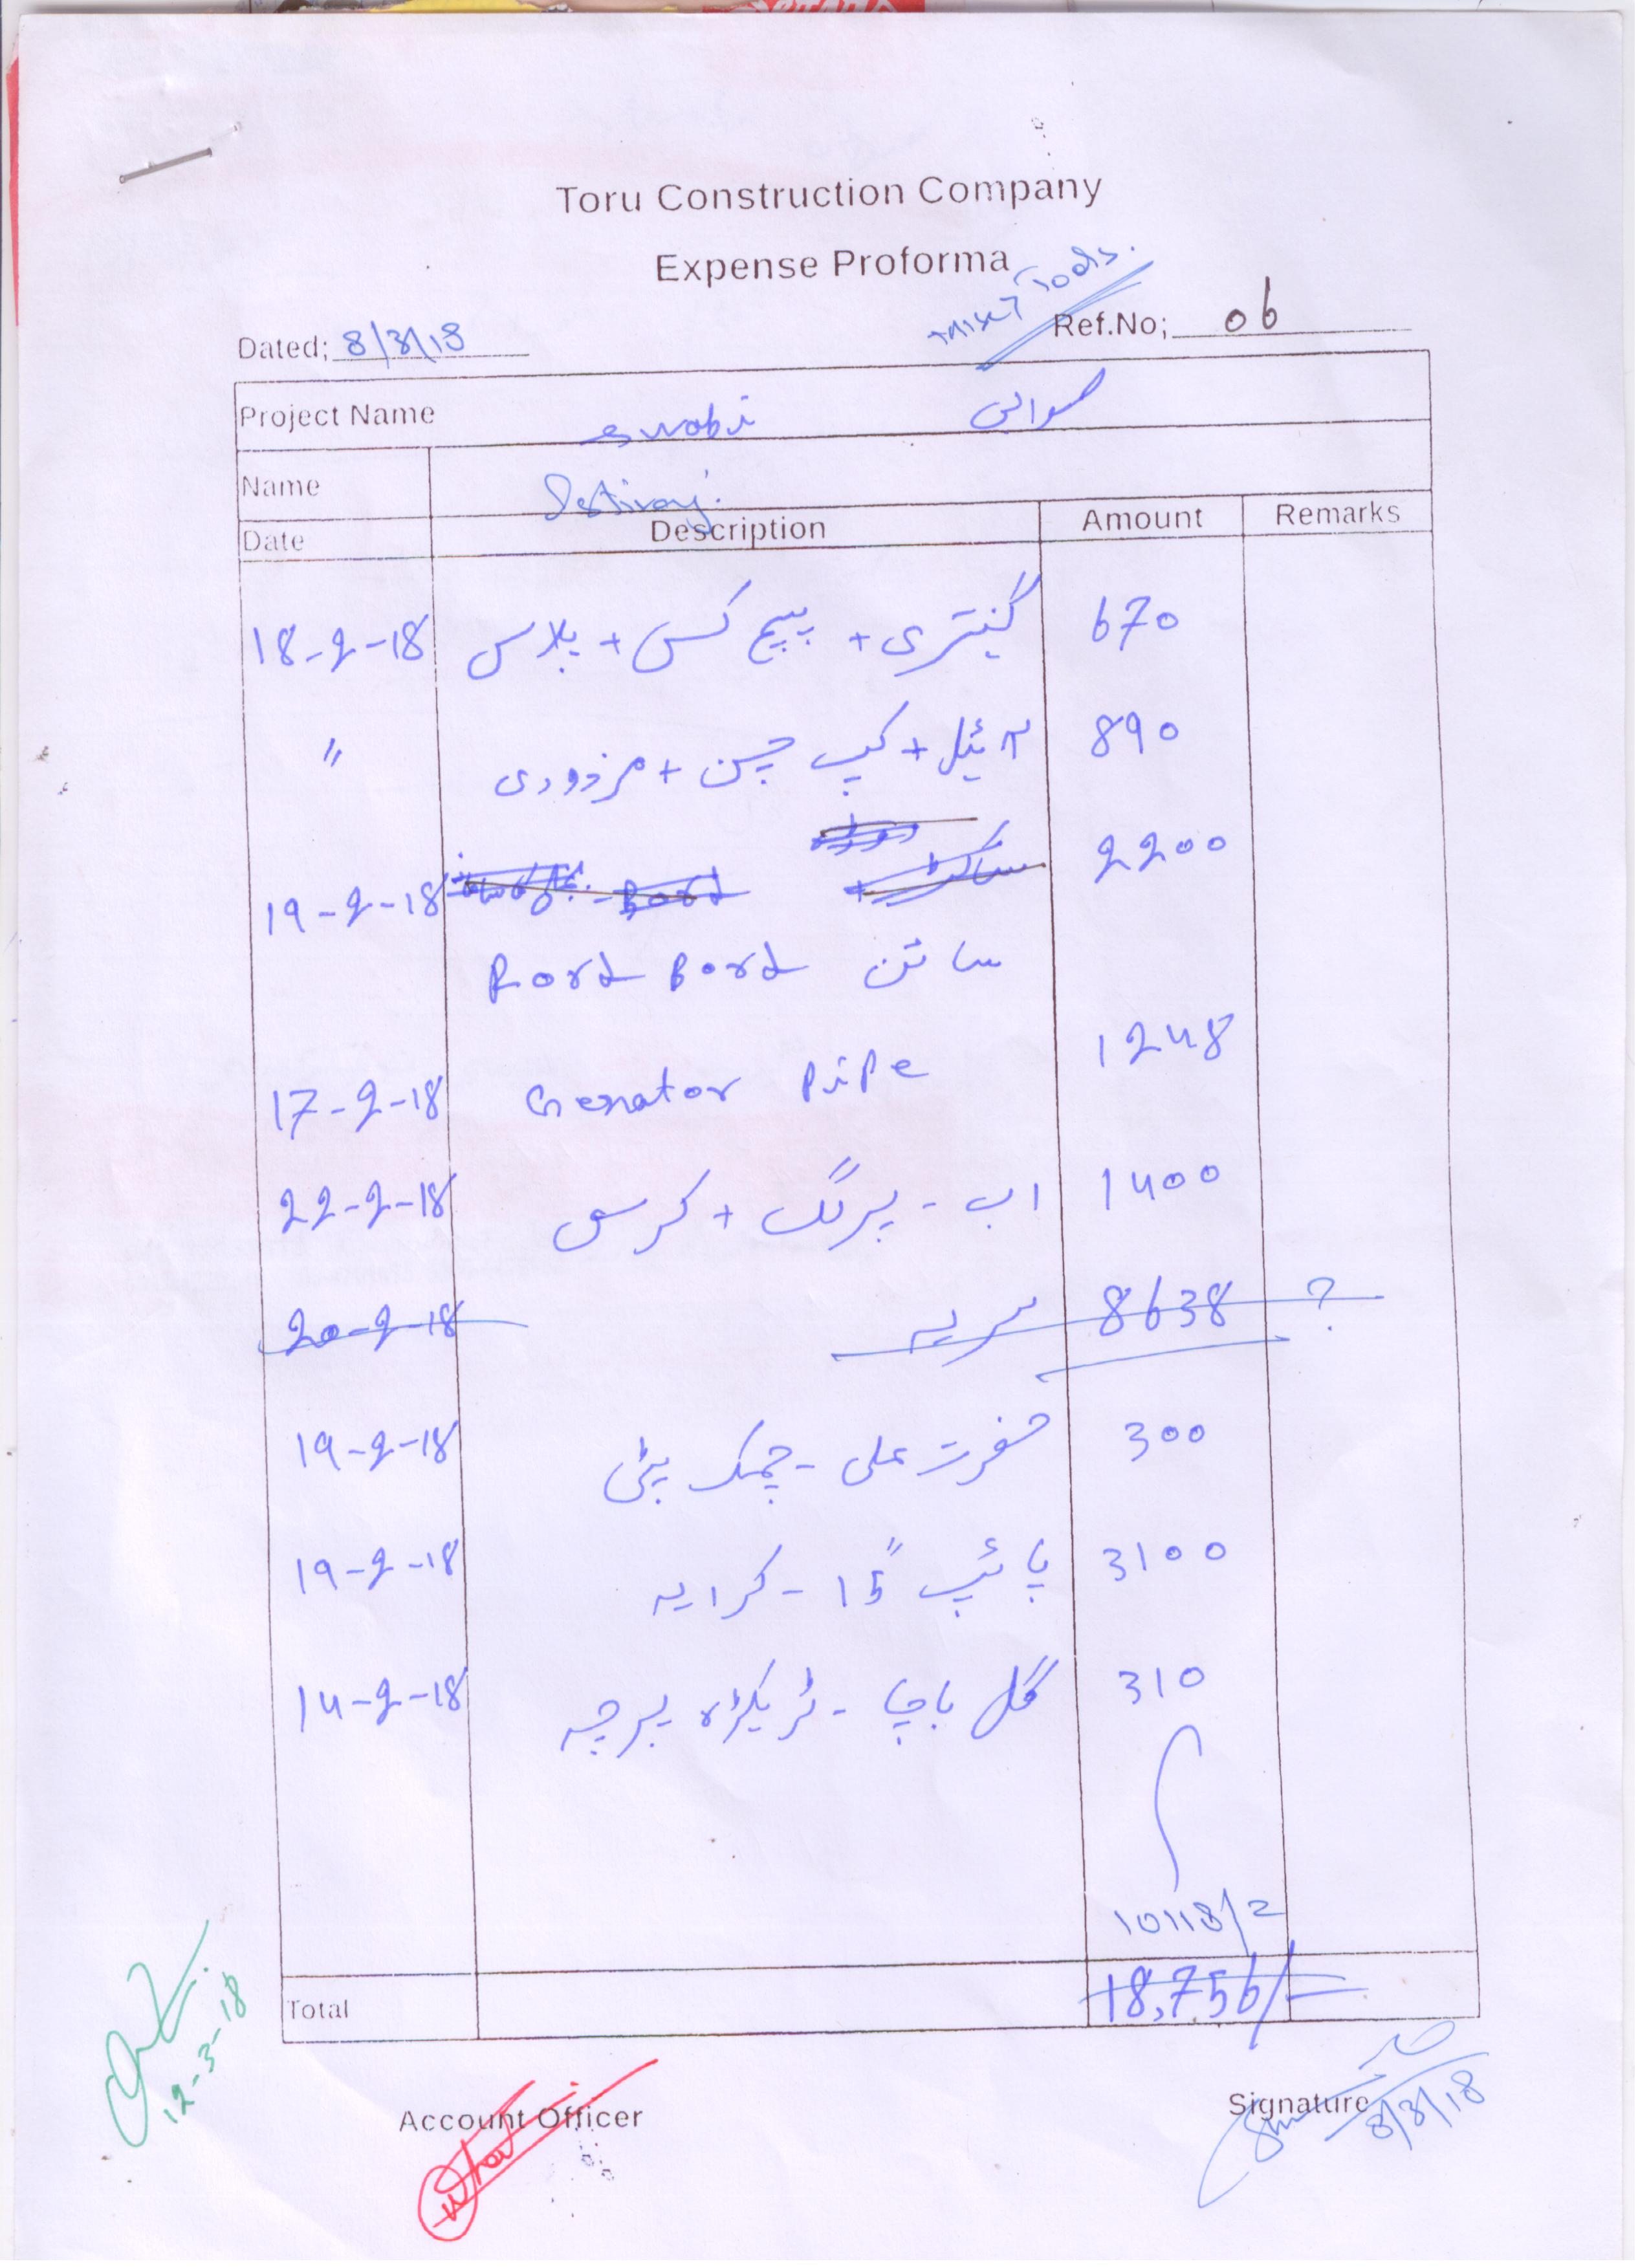 Toru Construction Company
Expense Proforma
Tools.
Dated; 8/3/18
Ref.No; 06
Project Name swabi صوابی
Name
Date Description Amount Remarks
18-2-18 گینتری + پیچ کس + پلاس 670
" آئیل + کپ چین + مزدوری 890
19-2-18 Bord 2200
Bord Bord ساتن
17-2-18 Genator PiPe 1248
22-2-18 اب - پرنگ + کرسی 1400
20-2-18 سریہ 8638 ?
19-2-18 علی - چمک پٹی 300
19-2-18 پائپ 15" - کرایہ 3100
14-2-18 گل باچا - پرچہ 310
10118/=
Total 18,756/=
12-3-18
Account Officer
Signature
8/3/18